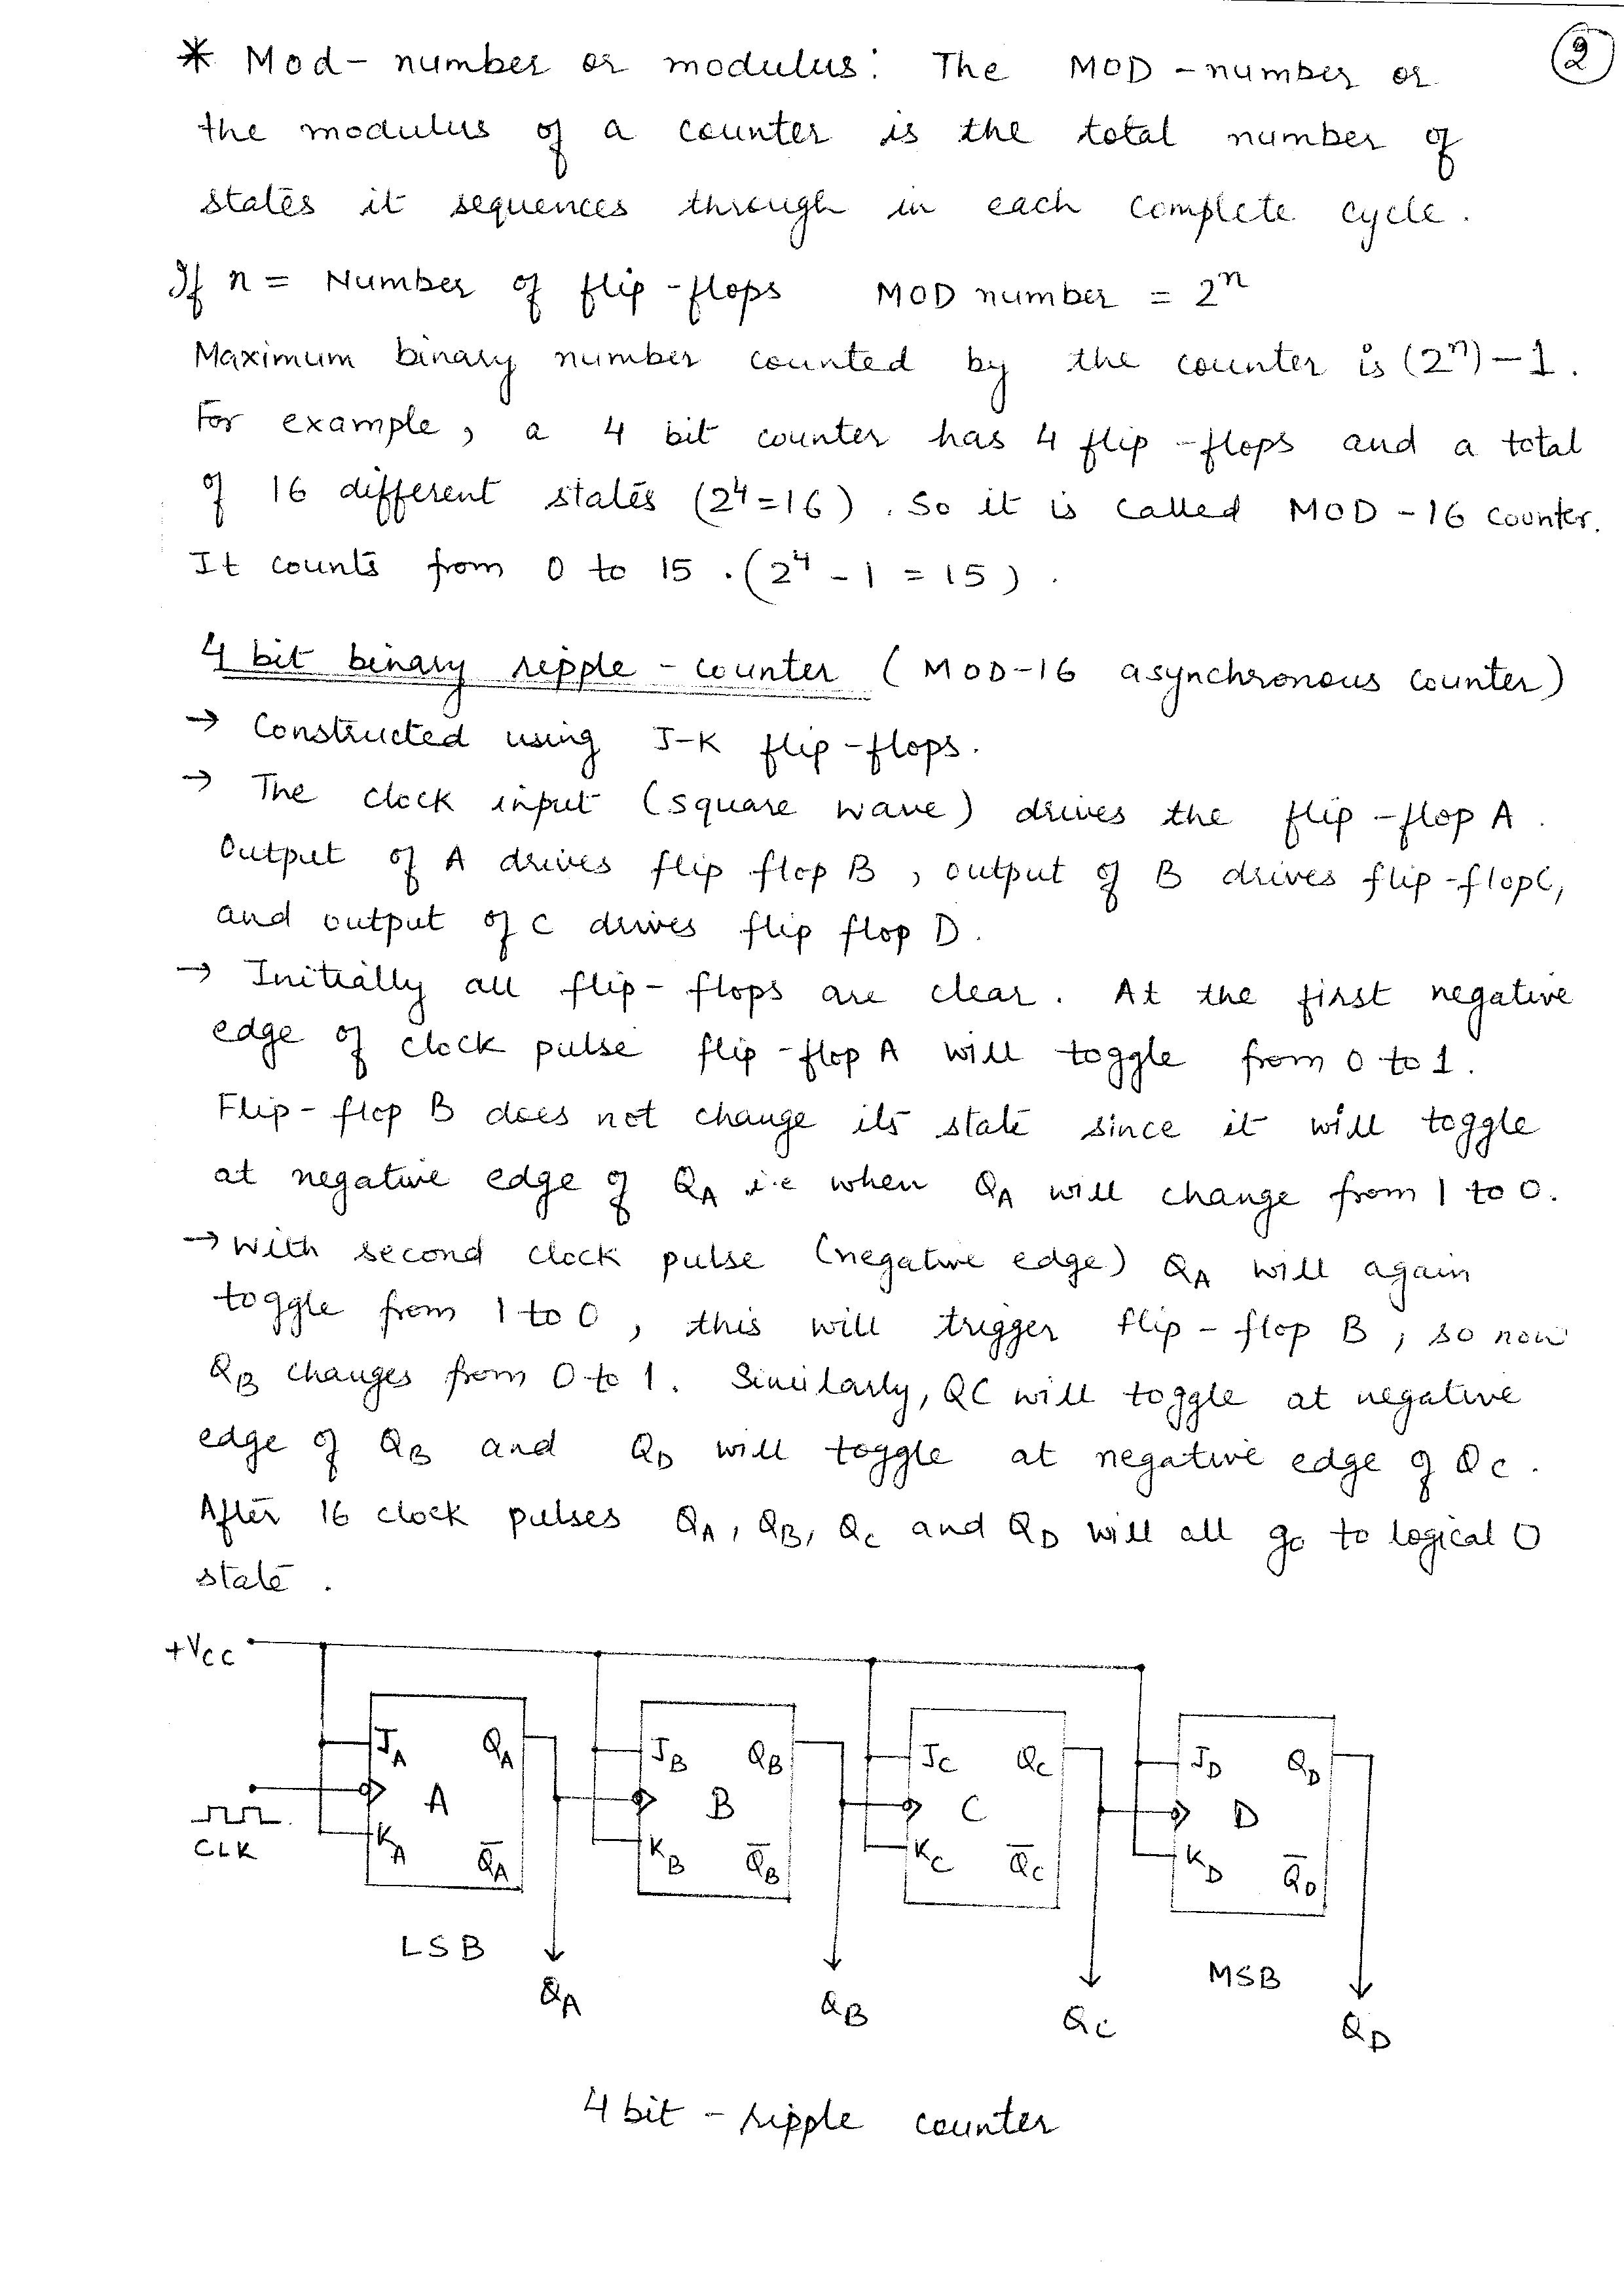 ②
* Mod-number or modulus: The MOD-number or
the modulus of a counter is the total number of
states it sequences through in each complete cycle.
If n = Number of flip-flops MOD number = 2ⁿ
Maximum binary number counted by the counter is (2ⁿ)-1.
For example, a 4 bit counter has 4 flip-flops and a total
of 16 different states (2⁴=16). So it is called MOD-16 counter.
It counts from 0 to 15. (2⁴-1=15).
4 bit binary ripple-counter (MOD-16 asynchronous counter)
→ Constructed using J-K flip-flops.
→ The clock input (square wave) drives the flip-flop A.
Output of A drives flip flop B, output of B drives flip-flop C,
and output of C drives flip flop D.
→ Initially all flip-flops are clear. At the first negative
edge of clock pulse flip-flop A will toggle from 0 to 1.
Flip-flop B does not change its state since it will toggle
at negative edge of Q_A i.e when Q_A will change from 1 to 0.
→ With second clock pulse (negative edge) Q_A will again
toggle from 1 to 0, this will trigger flip-flop B, so now
Q_B changes from 0 to 1. Similarly, QC will toggle at negative
edge of Q_B and Q_D will toggle at negative edge of Q_C.
After 16 clock pulses Q_A, Q_B, Q_C and Q_D will all go to logical 0
state.
+V_CC
J_A Q_A J_B Q_B J_C Q_C J_D Q_D
A B C D
CLK K_A Q̅_A K_B Q̅_B K_C Q̅_C K_D Q̅_D
LSB MSB
Q_A Q_B Q_C Q_D
4 bit-ripple counter